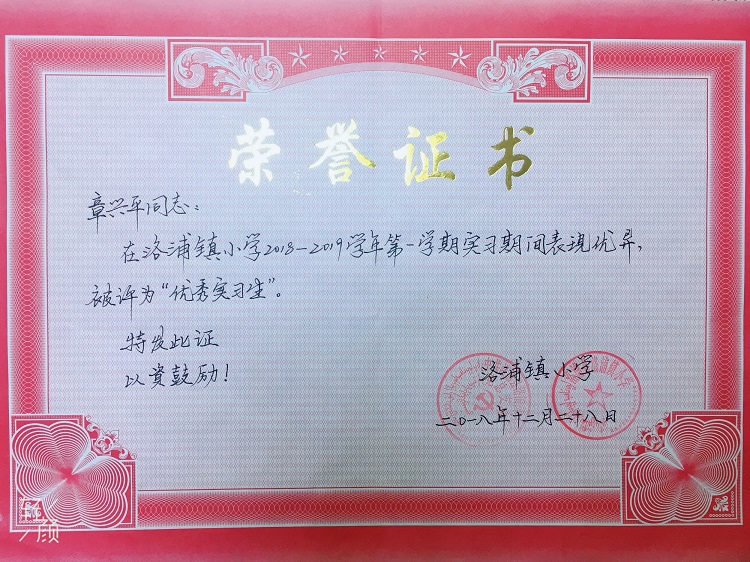 荣誉证书
章兴平同志：
在洛浦镇小学2018-2019学年第一学期实习期间表现优异，
被评为“优秀实习生”。
特发此证
以资鼓励！
洛浦镇小学
二〇一八年十二月二十八日
颜